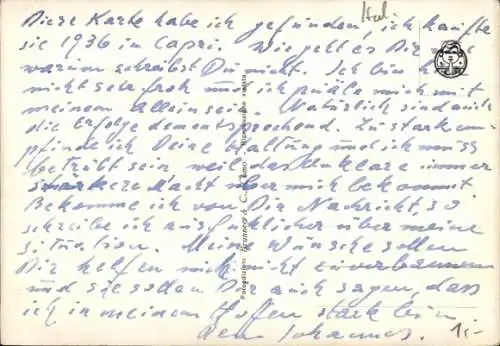 Ital.
Diese Karte habe ich gefunden, ich kaufte
sie 1936 in Capri. Wie geht es Dir und
warum schreibst Du nicht. Ich bin
nicht sehr froh und ich quäle mich mit
meinem Alleinsein. Natürlich sind auch
die Erfolge dementsprechend. Zu stark em-
pfinde ich Deine Haltung und ich muss
betrübt sein, weil das Unklare immer
stärkere Macht über mich bekommt
Bekomme ich von Dir Nachricht, so
schreibe ich ausführlicher über meine
Situation. Meine Wünsche sollen
Dir helfen mich nicht
und sie sollen Dir auch sagen, dass
ich in meinem Hoffen stark bin.
dein Johannes.
1,-
Fotoedizioni Brunner & C. Como - Riproduzione vietata